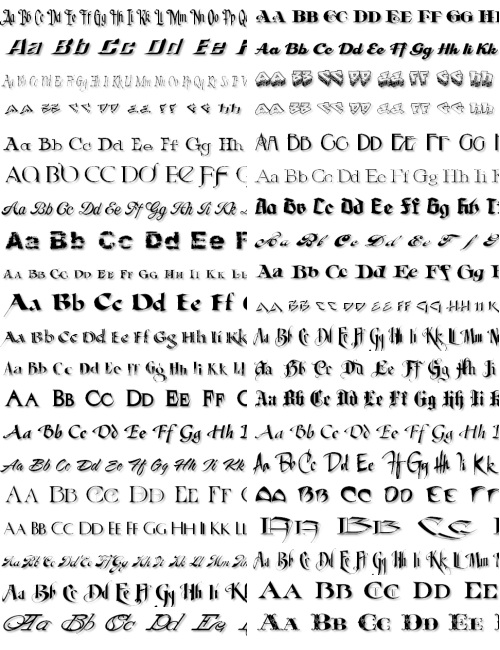 Aa Bb Cc Dd Ee Ff Gg Hh Ii Kk Ll Mm Nn Oo Pp Q
Aa Bb Cc Dd Ee F
Aa Bb Cc Dd Ee Ff Gg Hh Ii Kk Ll Mm Nn Oo Pp Qq Rr Ss Tt V
Aa Bb Cc Dd Ee Ff Gg Hh
Aa Bb Cc Dd Ee Ff Gg Hh
Aa Bb Cc Dd Ee Ff
Aa Bb Cc Dd Ee Ff Gg Hh Ii Kk
Aa Bb Cc Dd Ee F
Aa Bb Cc Dd Ee Ff Gg Hh Ii Kk Ll
Aa Bb Cc Dd Ee Ff
Aa Bb Cc Dd Ee Ff Gg Hh Ii Kk
Aa Bb Cc Dd Ee Ff Gg Hh Ii Kk Ll
Aa Bb Cc Dd Ee Ff
Aa Bb Cc Dd Ee Ff Gg Hh
Aa Bb Cc Dd Ee Ff Gg Hh Ii Kk
Aa Bb Cc Dd Ee Ff
Aa Bb Cc Dd Ee Ff Gg Hh Ii Kk Ll
Aa Bb Cc Dd Ee Ff Gg Hh Ii Kk Ll Mm
Aa Bb Cc Dd Ee Ff Gg Hh Ii K
Aa Bb Cc Dd Ee
Aa Bb Cc Dd Ee Ff Gg H
Aa Bb Cc Dd Ee Ff Gg Hh Ii Kk
Aa Bb Cc Dd Ee Ff Gg Hh
Aa Bb Cc Dd Ee Ff Gg Hh
Aa Bb Cc Dd Ee Ff Gg H
Aa Bb Cc Dd Ee Ff Gg Hh Ii
Aa Bb Cc Dd Ee Ff Gg Hh I
Aa Bb Cc Dd Ee F f
Aa Bb Cc Dd Ee Ff Gg
Aa Bb Cc Dd Ee Ff Gg Hh Ii K
Aa Bb Cc Dd Ee Ff Gg Hh Ii Kk Ll Mm N
Aa Bb Cc Dd Ee Ff Gg Hh Ii
Aa Bb Cc Dd Ee Ff Gg Hh Ii K
Aa Bb Cc Dd Ee Ff Gg Hh Ii
Aa Bb Cc Dd Ee Ff Gg Hh Ii Kk
Aa Bb Cc Dd Ee Ff
Aa Bb Cc
Aa Bb Cc Dd Ee Ff Gg Hh Ii Kk Ll Mm N
Aa Bb Cc Dd Ee
Aa Bb Cc Dd Ee